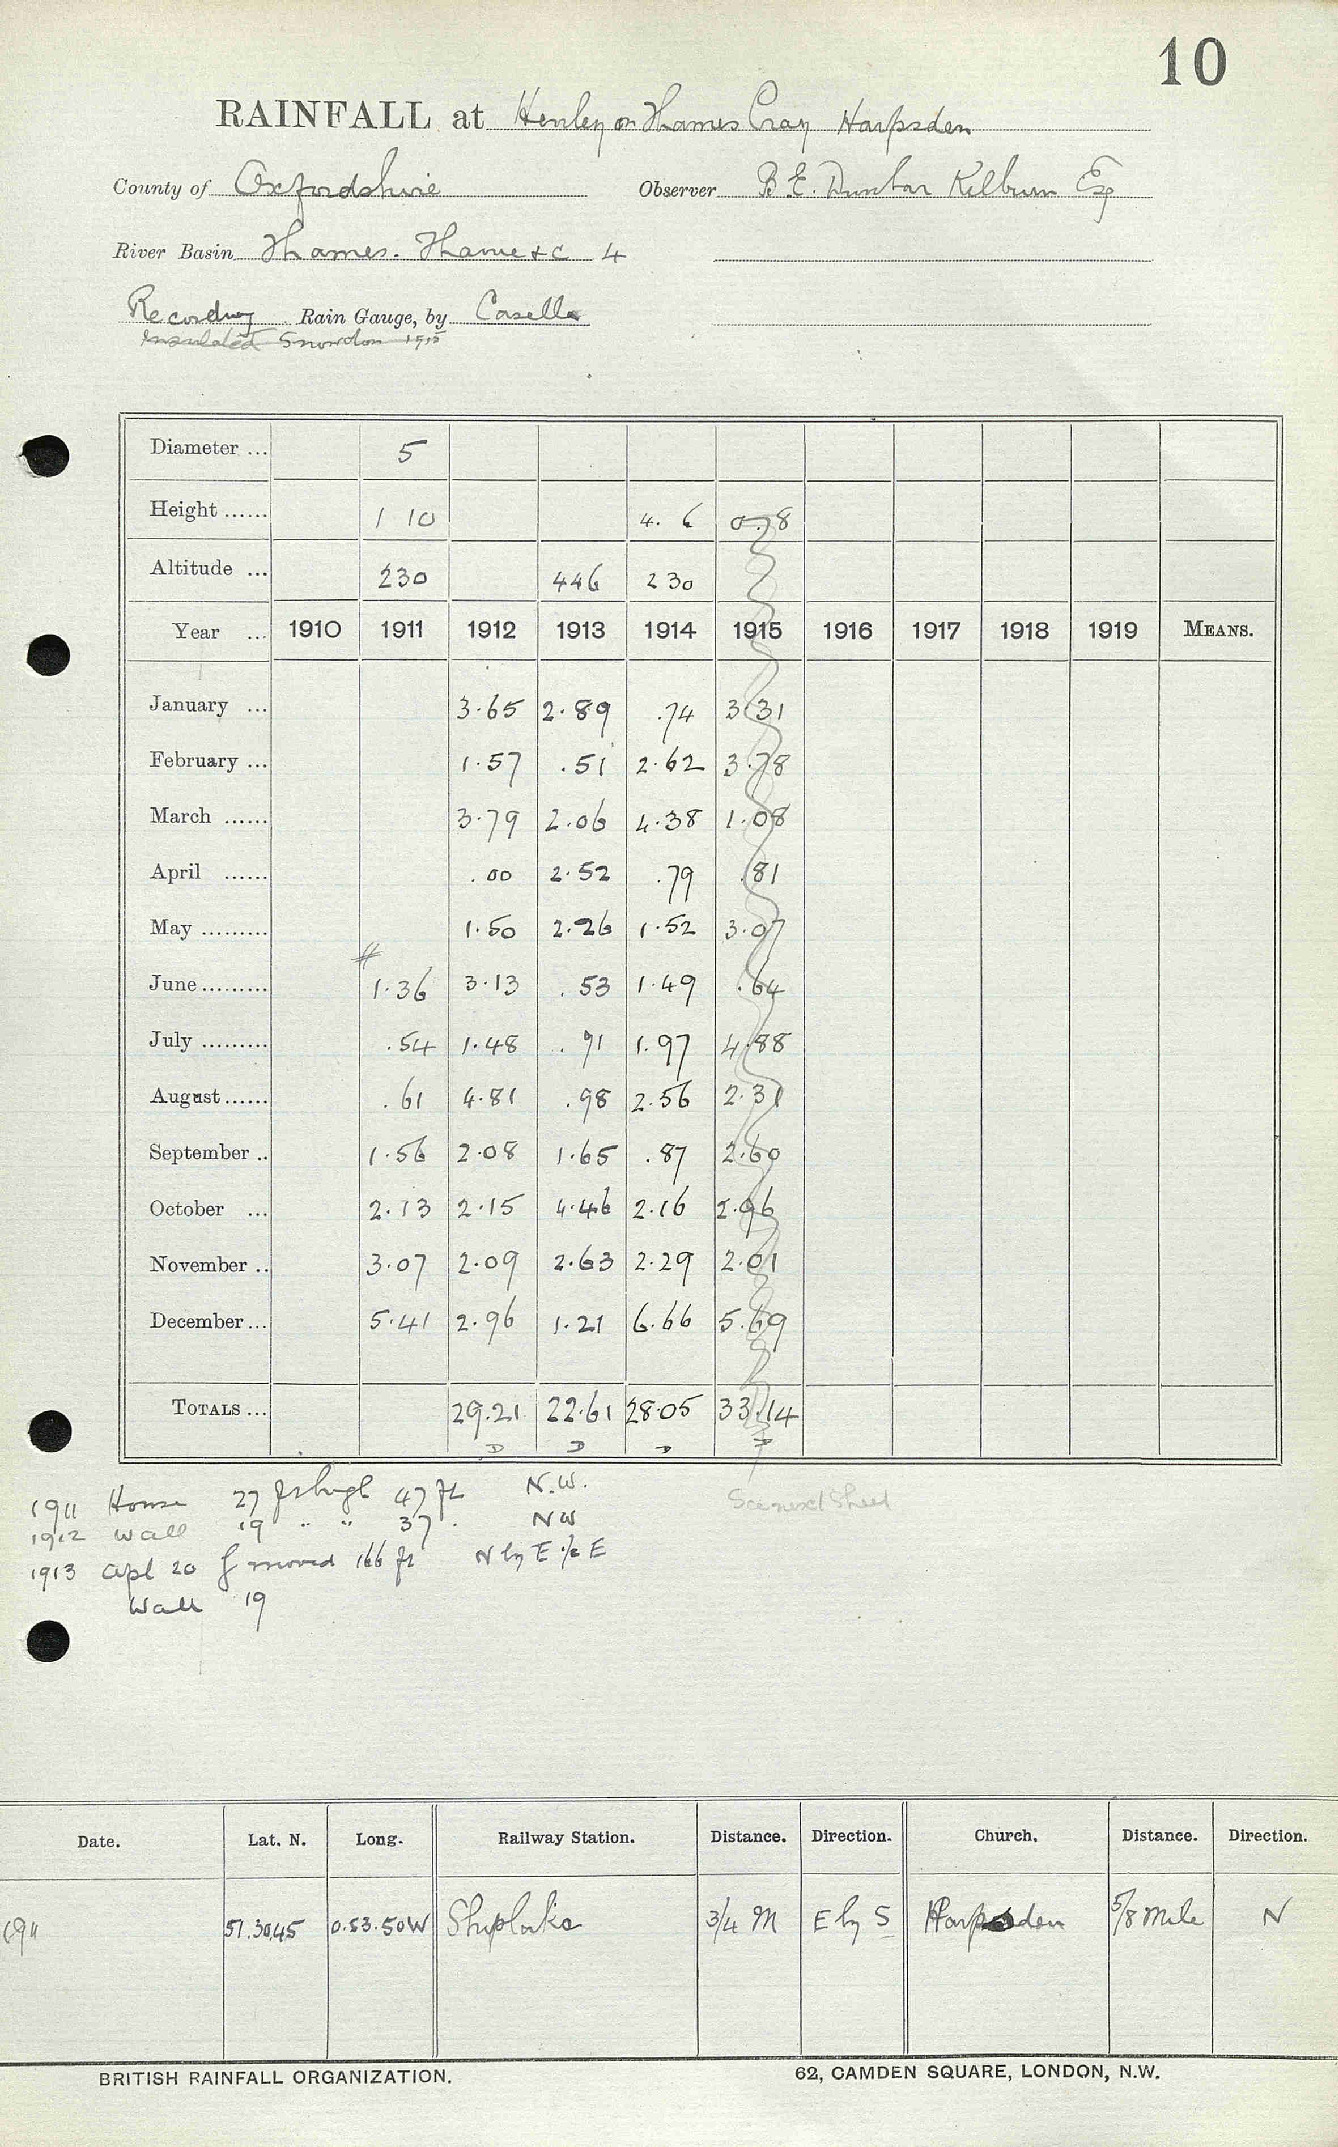 10
RAINFALL at Henley on Thames Cray Harpsden
County of Oxfordshire Observer B. E. Dunbar Kilburn Esq
River Basin Thames. Thame &c 4
Recording Rain Gauge, by Casella
Insulated Snowdon 1915
Diameter ... 5
Height ...... 1 10 4. 6 0.78
Altitude ... 230 446 230
Year ... 1910 1911 1912 1913 1914 1915 1916 1917 1918 1919 MEANS.
January ... 3.65 2.89 .74 3.31
February ... 1.57 .51 2.62 3.78
March ...... 3.79 2.06 4.38 1.08
April ...... .00 2.52 .79 .81
May ......... 1.50 2.26 1.52 3.07
#
June ......... 1.36 3.13 .53 1.49 .64
July ......... .54 1.48 .91 1.97 4.88
August ...... .61 4.81 .98 2.56 2.31
September .. 1.56 2.08 1.65 .87 2.60
October ... 2.13 2.15 4.46 2.16 2.96
November .. 3.07 2.09 2.63 2.29 2.01
December ... 5.41 2.96 1.21 6.66 5.69
TOTALS ... 29.21 22.61 28.05 33.14
D D D D
1911 House 27 ft high 47 ft N.W.
1912 Wall 19 " " 37 . NW
1913 Apl 20 g moved 166 ft N by E ½ E
Wall 19
See next Sheet
Date. Lat. N. Long. Railway Station. Distance. Direction. Church. Distance. Direction.
1911 51.30.45 0.53.50W Shiplake 3/4 M E by S Harpsden 5/8 mile N
BRITISH RAINFALL ORGANIZATION. 62, CAMDEN SQUARE, LONDON, N.W.